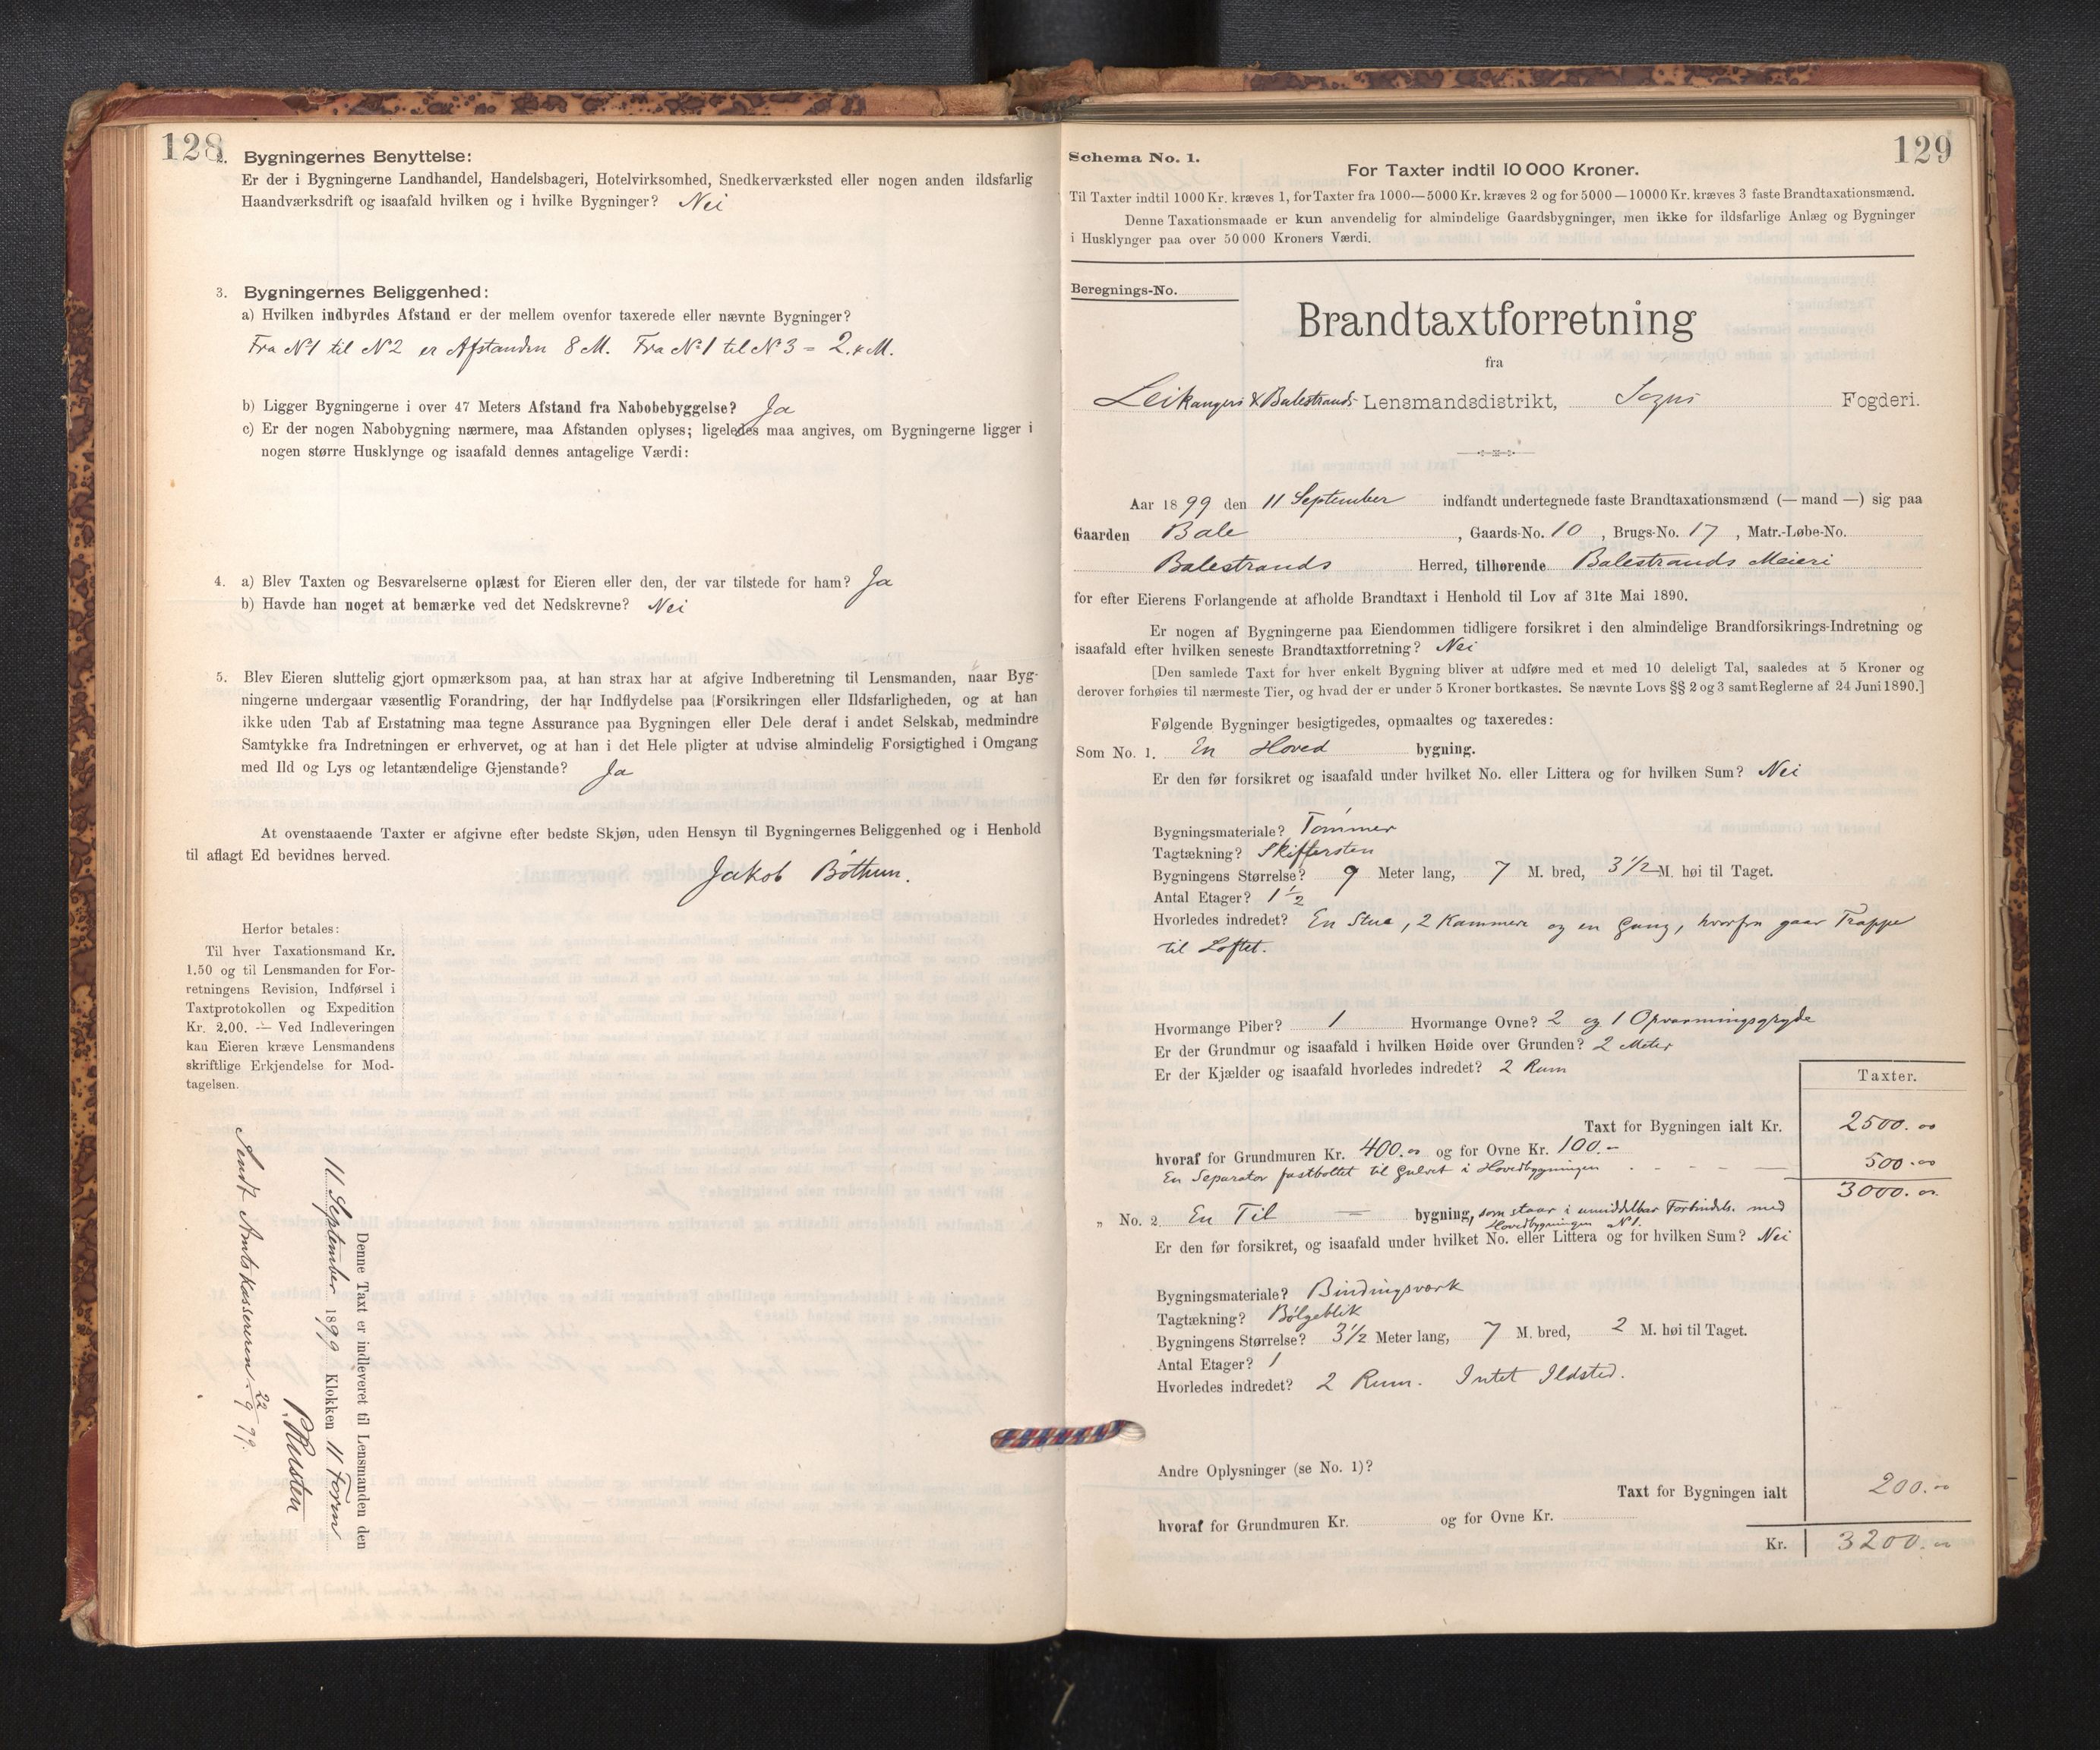 128
2. Bygningernes Benyttelse:
Er der i Bygningerne Landhandel, Handelsbageri, Hotelvirksomhed, Snedkerværksted eller nogen anden ildsfarlig
Haandværksdrift og isaafald hvilken og i hvilke Bygninger? Nei
3. Bygningernes Beliggenhed:
a) Hvilken indbyrdes Afstand er der mellem ovenfor taxerede eller nævnte Bygninger?
Fra N1 til N2 er Afstanden 8 M. Fra N1 til N3 = 2. M.
b) Ligger Bygningerne i over 47 Meters Afstand fra Nabobebyggelse? Ja
c) Er der nogen Nabobygning nærmere, maa Afstanden oplyses; ligeledes maa angives, om Bygningerne ligger i
nogen større Husklynge og isaafald dennes antagelige Værdi:
4. a) Blev Taxten og Besvarelserne oplæst for Eieren eller den, der var tilstede for ham? Ja
b) Havde han noget at bemærke ved det Nedskrevne? Nei
5. Blev Eieren sluttelig gjort opmærksom paa, at han strax har at afgive Indberetning til Lensmanden, naar Byg-
ningerne undergaar væsentlig Forandring, der har Indflydelse paa Forsikringen eller Ildsfarligheden, og at han
ikke uden Tab af Erstatning maa tegne Assurance paa Bygningen eller Dele deraf i andet Selskab, medmindre
Samtykke fra Indretningen er erhvervet, og at han i det Hele pligter at udvise almindelig Forsigtighed i Omgang
med Ild og Lys og letantændelige Gjenstande? Ja
At ovenstaaende Taxter er afgivne efter bedste Skjøn, uden Hensyn til Bygningernes Beliggenhed og i Henhold
til aflagt Ed bevidnes herved.
Jakob Bøthun.
Herfor betales:
Til hver Taxationsmand Kr.
1.50 og til Lensmanden for For-
retningens Revision, Indførsel i
Taxtprotokollen og Expedition
Kr. 2,00. — Ved Indleveringen
kan Eieren kræve Lensmandens
skriftlige Erkjendelse for Mod-
tagelsen.
Denne Taxt er indleveret til Lensmanden den
11 September 1899 Klokken 11 Form
Sendt Amtskassereren 22/9 99.
129
Schema No. 1.
For Taxter indtil 10 000 Kroner.
Til Taxter indtil 1000 Kr. kræves 1, for Taxter fra 1000—5000 Kr. kræves 2 og for 5000—10000 Kr. kræves 3 faste Brandtaxationsmænd.
Denne Taxationsmaade er kun anvendelig for almindelige Gaardsbygninger, men ikke for ildsfarlige Anlæg og Bygninger
i Husklynger paa over 50 000 Kroners Værdi.
Beregnings-No.
Brandtaxtforretning
fra
Leikangers & Balestrands Lensmandsdistrikt, Sogns Fogderi.
Aar 1899 den 11 September indfandt undertegnede faste Brandtaxationsmænd (— mand —) sig paa
Gaarden Bale, Gaards-No. 10, Brugs-No. 17, Matr.-Løbe-No.
Balestrands Herred, tilhørende Balestrands Meieri
for efter Eierens Forlangende at afholde Brandtaxt i Henhold til Lov af 31te Mai 1890.
Er nogen af Bygningerne paa Eiendommen tidligere forsikret i den almindelige Brandforsikrings-Indretning og
isaafald efter hvilken seneste Brandtaxtforretning? Nei
[Den samlede Taxt for hver enkelt Bygning bliver at udføre med et med 10 deleligt Tal, saaledes at 5 Kroner og
derover forhøies til nærmeste Tier, og hvad der er under 5 Kroner bortkastes. Se nævnte Lovs §§ 2 og 3 samt Reglerne af 24 Juni 1890.]
Følgende Bygninger besigtigedes, opmaaltes og taxeredes:
Som No. 1. En Hoved bygning.
Er den før forsikret og isaafald under hvilket No. eller Littera og for hvilken Sum? Nei
Bygningsmateriale? Tømmer
Tagtækning? Skifersten
Bygningens Størrelse? 9 Meter lang, 7 M. bred, 3 1/2 M. høi til Taget.
Antal Etager? 1 1/2
Hvorledes indredet? En Stue, 2 Kammere og en Gang, hvorfra gaar Trappe
til Loftet.
Hvormange Piber? 1 Hvormange Ovne? 2 og 1 Opvarmningsgryde
Er der Grundmur og isaafald i hvilken Høide over Grunden? 2 Meter
Er der Kjælder og isaafald hvorledes indredet? 2 Rum
Taxter.
Taxt for Bygningen ialt Kr. 2500.00
hvoraf for Grundmuren Kr. 400.00 og for Ovne Kr. 100.—
En Separator fastboltet til Gulvet i Hovedbygningen - - - - 500.00
3000.00
„ No. 2 En Til = bygning, som staar i umiddelbar Forbindels. med
Hovedbygningen N1.
Er den før forsikret, og isaafald under hvilket No. eller Littera og for hvilken Sum? Nei
Bygningsmateriale? Bindingsværk
Tagtækning? Bølgeblik
Bygningens Størrelse? 3 1/2 Meter lang, 7 M. bred, 2 M. høi til Taget.
Antal Etager? 1
Hvorledes indredet? 2 Rum. Intet Ildsted.
Andre Oplysninger (se No. 1)?
Taxt for Bygningen ialt 200.00
hvoraf for Grundmuren Kr. og for Ovne Kr.
Kr. 3200.00